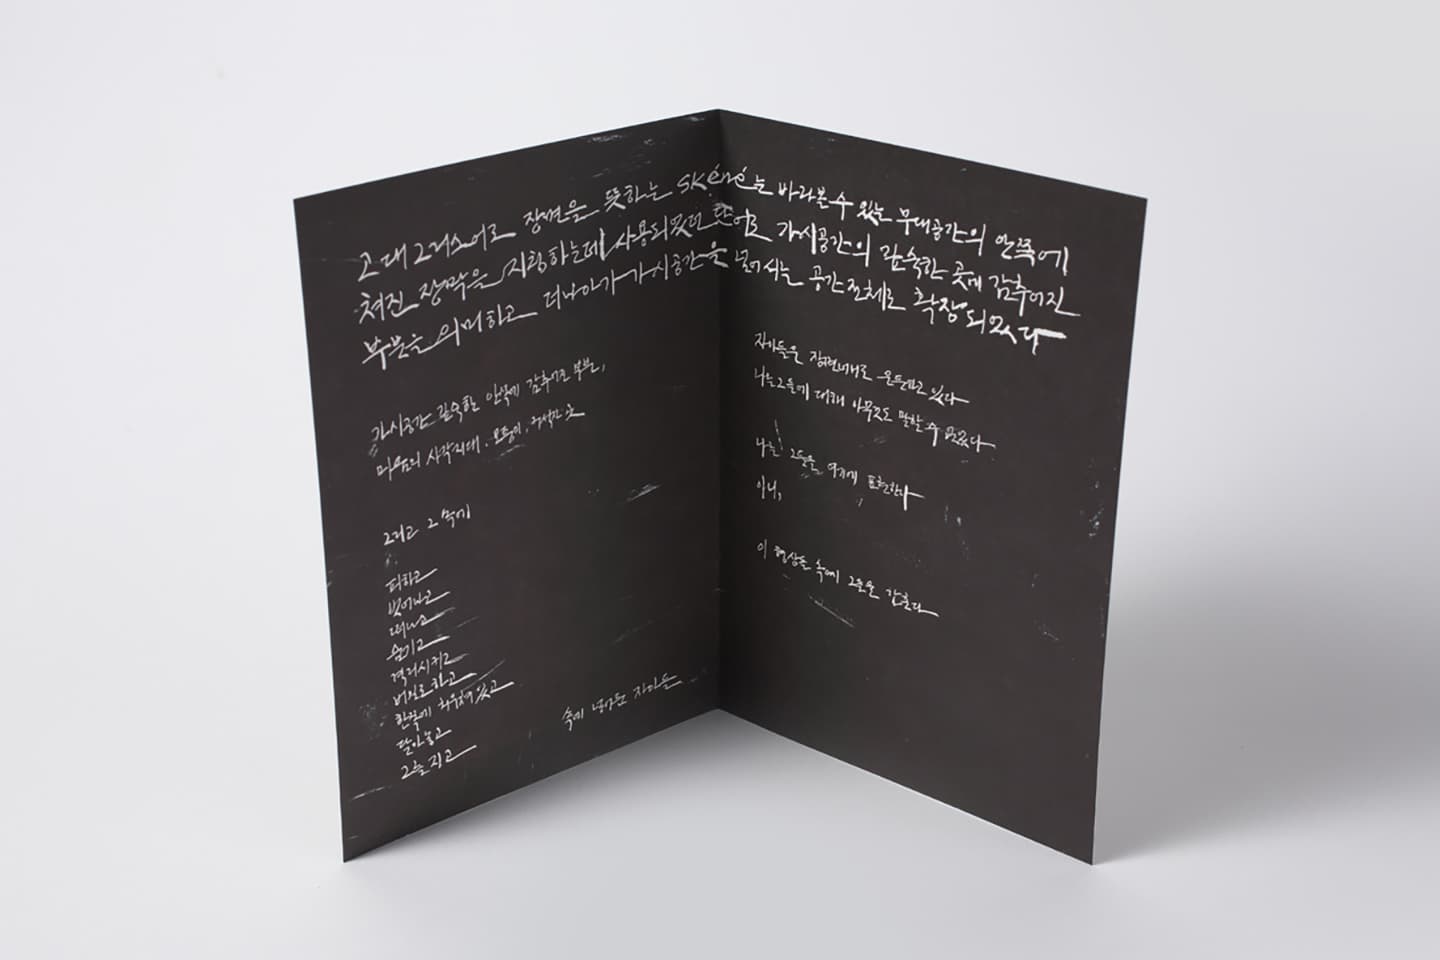 고대 그리스어로 장면을 뜻하는 skéné는 바라볼 수 있는 무대공간의 안쪽에
쳐진 장막을 지칭하는데 사용되었던 단어로 가시공간의 깊숙한 곳에 감추어진
부분을 의미하고 더 나아가 가시공간을 넘어서는 공간 전체로 확장되었다
가시공간 깊숙한 안쪽에 감추어진 부분,
마음의 사각지대, 모퉁이, 구석진 곳
그리고 그 속에
피하고
벗어나고
떠나고
숨기고
격리시키고
비밀로 하고
한쪽에 치우쳐 있고
닫아놓고
그늘지고
속에 남아있는 자아들
자아들은 장면 내내로 은둔하고 있다
나는 그들에 대해 아무것도 말할 수 없었다
나는 그들을 여기에 표현한다
아니,
이 형상들 속에 그들을 감춘다